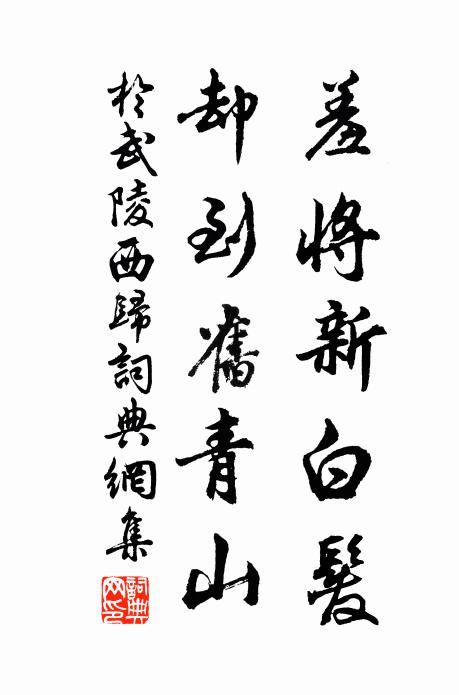 羞將新白髮
却到舊青山
於武陵西歸詞典網集
詞典网印